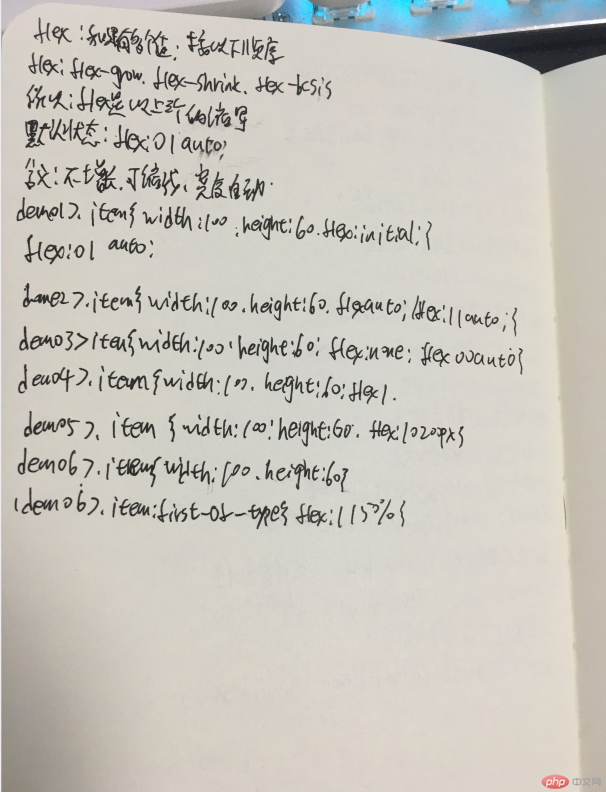 flex:如果有多个值,末尾以下顺序
flex:flex-grow.flex-shrink.flex-basis
所以:flex是以上三个的缩写
默认状态:flex:01 auto;
含义:不增长,可缩放,宽度自动.
demo1>.item{width:100;height:60.flex:initial;{
flex:01 auto;
>.item{width:100.height:60.flexauto;/flex:11auto;{
demo3>item{width:100;height:60;flex:none;flex00auto}
demo4>.item{width:100.height:60;flex1.
demo5>.item{width:100;height:60.flex:1020px}
demo6>.item{width:100.height:60}
demo6>.item:first-of-type{flex:1150%{
php 中文网